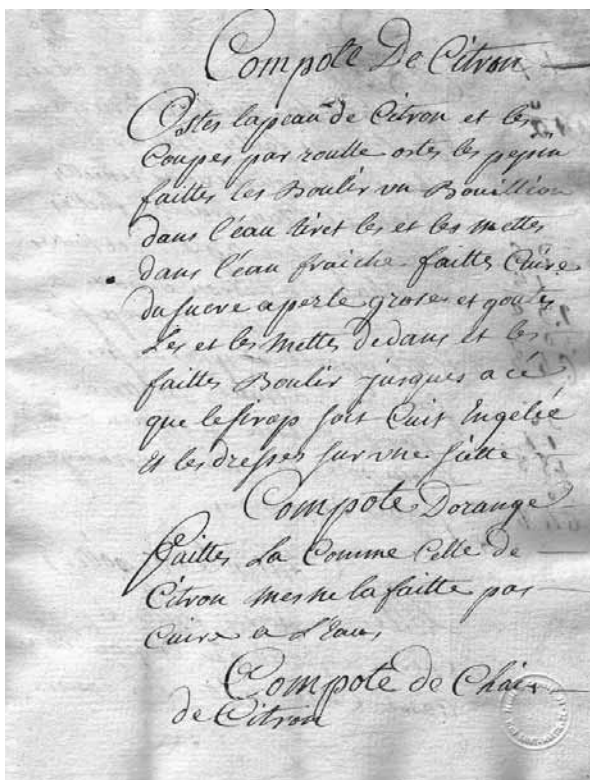 Compote De Citron
Ostes lapeau de Citron et les
Coupes par roulle ostes les pepin
faittes les Boulir un Bouillion
dans l'eau tiret les et les mettes
dans l'eau fraiche faittes Cuire
du sucre a perle grose et goutes
Les et les mettes dedans et les
faittes Boulir jusques a cé
que le sirop soit Cuit Engelée
Et les dresses sur une
Compote Dorange
faittes La Comme Celle de
Citron mes ne la faitte pas
Cuire a L'Eau
Compote de Chair
de Citron